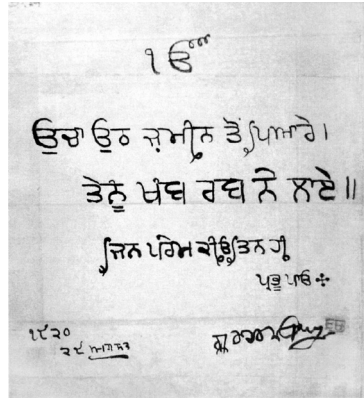 ੧ਓ
ਉਚਾ ਉਠ ਜ਼ਮੀਨ ਤੋਂ ਪਿਆਰੇ।
ਤੇਨੂੰ ਖੰਬ ਰਬ ਨੇ ਲਾਏ॥
ਜਿਨ ਪਰੇਮ ਕੀਓ ਤਿਨ ਹੀ
ਪ੍ਰਭੂ ਪਾਓ
੧੯੨੦
੨੯ ਅਗਸਤ